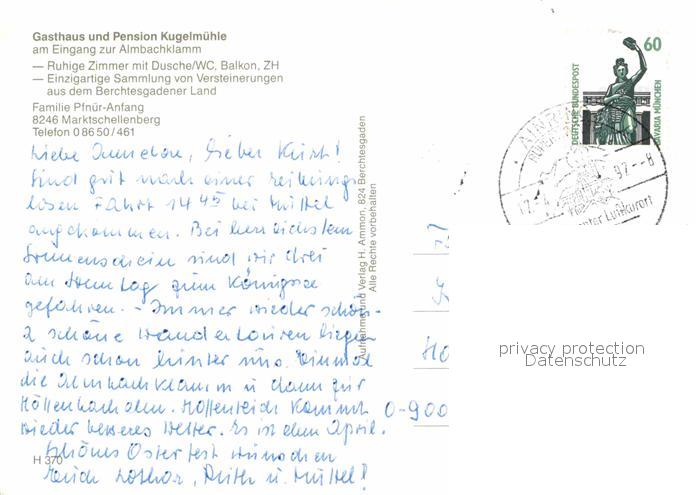 Gasthaus und Pension Kugelmühle
am Eingang zur Almbachklamm
— Ruhige Zimmer mit Dusche/WC, Balkon, ZH
— Einzigartige Sammlung von Versteinerungen
aus dem Berchtesgadener Land
Familie Pfnür-Anfang
8246 Marktschellenberg
Telefon 0 86 50 / 461
Liebe Lieber Kurt!
Sind gut nach einer reibungs
losen Fahrt 14 45 bei Muttel
angekommen. Bei herrlichstem
Sonnenschein sind wir drei
am Sonntag zum Königsee
gefahren. - Immer wieder schön -
2 schöne Wandertouren liegen
auch schon hinter uns. Einmal
die Almbachklamm u dann zur
Höllenbachalm. Hoffentlich kommt
wieder besseres Wetter. Es ist eben April.
Schönes Osterfest wünschen
Euch Lothar, Ruth u. Muttel!
H 370
Aufnahme und Verlag H. Ammon, 824 Berchtesgaden
Alle Rechte vorbehalten
60
DEUTSCHE BUNDESPOST
BAVARIA MÜNCHEN
AINRING
Luftkurort
Ho
O-900
privacy protection
Datenschutz